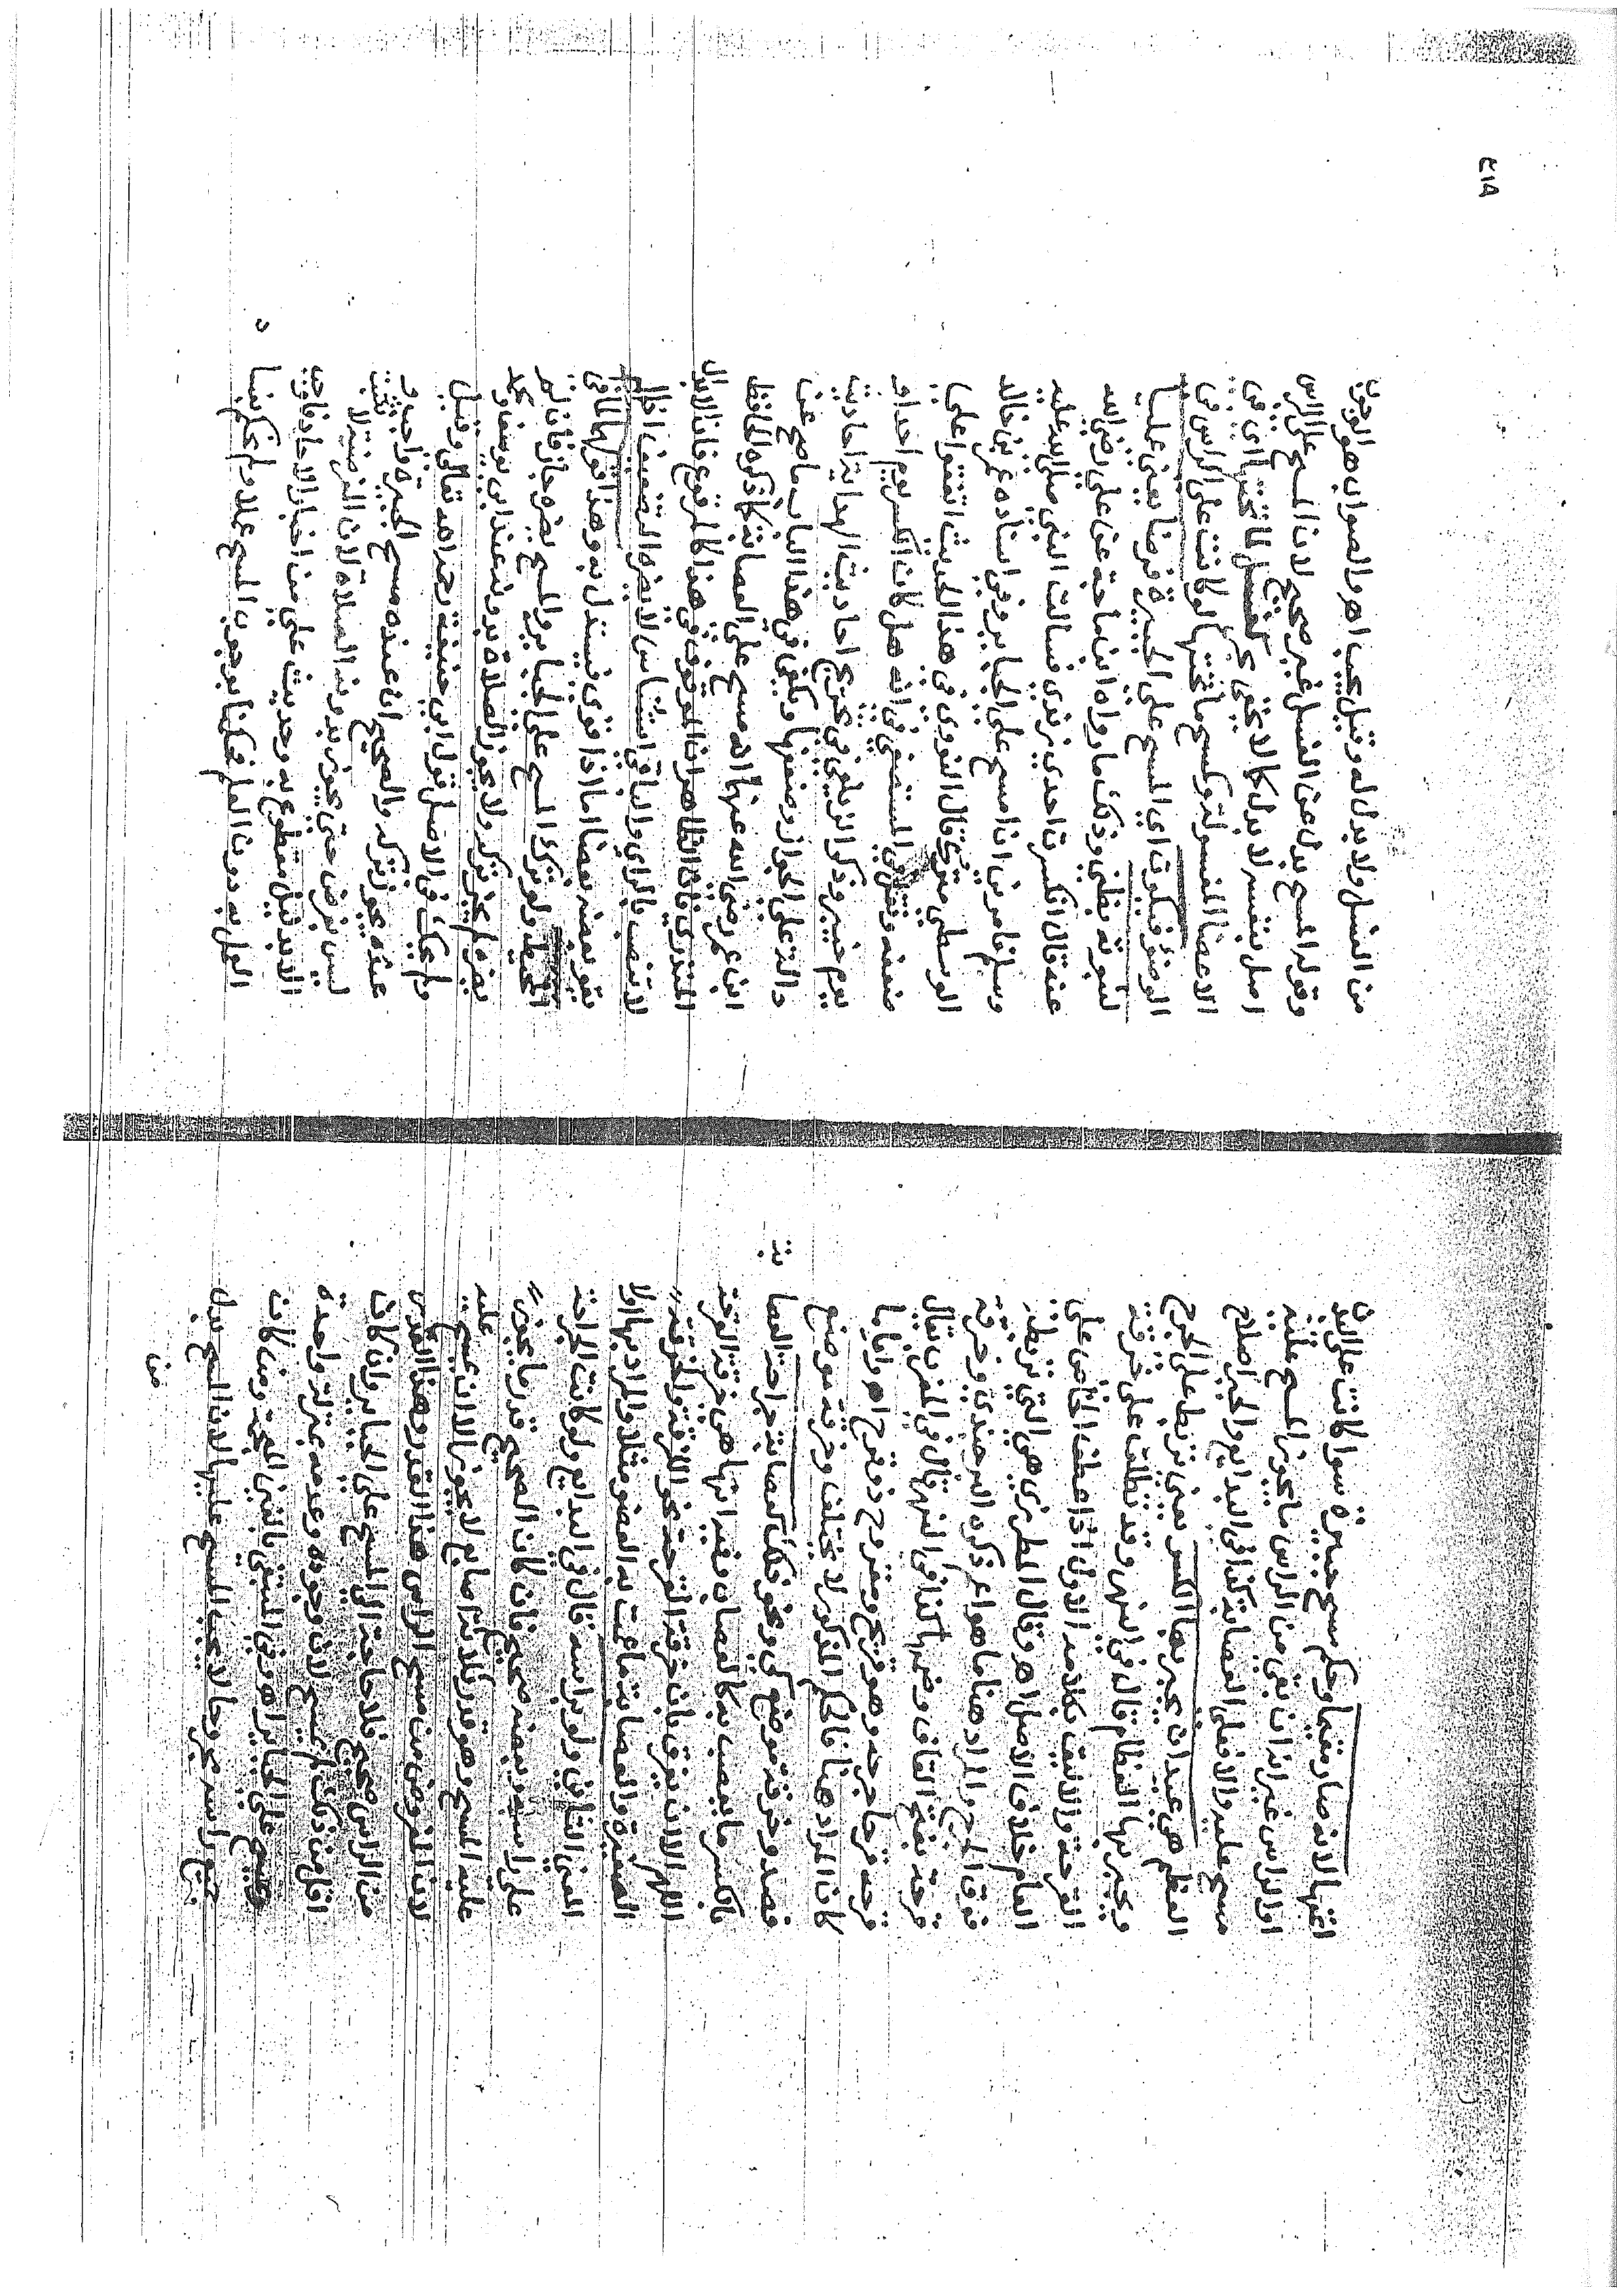 اغتها لانه صار مقيما وحكم مسح جبيرة سوا كانت على البدن
او الراس غير انه ان بقى من الراس ما يجوز المسح عليه
مسح عليه والا فعلى العصابة كذا في البدايع والجبر اصلاح
العظم هي عيدان يجبر بها الكسر يعني تربط على الجرح
ويجبر بها العظام قال في النهر وقد تطلق على خرقة
القرحة والاليق بكلامه الاول اذ اعطف الخاص على
العام خلاف الاصل اهـ وقال المطرزي هي التي تربط
فوق الجرح والمراد هنا ما هو اعم ذكره البرجندي وخرقة
قرحة بفتح القاف وضمها كذا في النهر قال في المغرب يقال
قرحه قرحا جرحه وهو قريح ومقروح ذو قروح اهـ وايا ما
كان المراد هنا فالحكم المذكور لا يختلف وخرقة موضع
فصد وخرقة موضع كي ونحو ذلك كعصابة جراحة العصابة
بالكسر ما يعصب به كالعصاب وفيه انها هي خرقة القرحة
اللهم الا ان يفرق بان خرقة القرحة نحو اللزقة والخرقة
الصغيرة والعصابة ما عمت به العضو مثلا والمراد بها اولا
المعنى الثاني ولو براسه قال في البدايع ولو كانت الجراحة
على راسه وبعضه صحيح فان كان الصحيح قدر ما يجوز
عليه المسح وهو قدر ثلاث اصابع لا يجوز الا ان يمسح عليه
لان المفروض من مسح الراس هذا القدر وهذا القدر
من الراس صحيح فلا حاجة الى المسح على الجباير وان كان
اقل من ذلك لم يمسح لان وجوده وعدمه بمنزلة واحدة
ويمسح على الجباير اهـ وفي المبتغى بالغين المعجمة ومن كان
جميع راسه مجروحا لا يجب المسح عليها لان المسح بدل
من
٤١٥
من الغسل ولا بدل له وقيل يجب اهـ والصواب هو الوجوب
وقوله المسح بدل عن الغسل غير صحيح لان المسح على الراس
اصل بنفسه لا بدل كما لا يخفى بحر كغسل لما تحتها اى من
الاعضا المغسولة وكمسح ما تحتها لو كانت على الراس في
الوضو فيكون اي المسح على الجبيرة فرضا يعني عمليا
لثبوته بظني وذلك ما رواه ابن ماجة عن علي رضي الله
عنه قال انكسرت احدى زندي فسالت النبي صلى الله عليه
وسلم فامرني ان امسح على الجباير وفي اسناده عمر بن خالد
الواسطي متروك قال النووي في هذا الحديث اتفقوا على
ضعفه ونقل في المستصفى في انه هل كان الكسر يوم احد او
يوم خيبر وذكر الزيلعي في تخريج احاديث الهداية احاديث
دالة على الجواز وضعفها ويكفي في هذا الباب ما صح عن
ابن عمر رضي الله عنهما انه مسح على العصابة كما ذكره الحافظ
المنذري فان الظاهر ان الموقوف في هذا كالمرفوع فان الابدال
لا تنصب بالراي والباقي استئناس لا يضره التضعيف اذا لم
يقو بعضه بعضا اما اذا قوى فيستدل به وهذا قولهما لما في
المحيط ولو ترك المسح على الجباير والمسح يضره جاز فان لم
يضره لم يجز تركه ولا يجوز الصلاة بدونه عند ابي يوسف ومحمد
ولم يحك في الاصل قول ابي حنيفة رحمه الله تعالى وقيل
عنده يجوز تركه والصحيح ان عنده مسح الجبيرة واجب و
ليس بفرض حتى يجوز بدونه الصلاة لان الفرضية لا تثبت
الا بدليل مقطوع به وحديث علي من اخبار الاحاد فاوجب
العمل به دون العلم فحكمنا بوجوب المسح عملا ولم نحكم بفسا